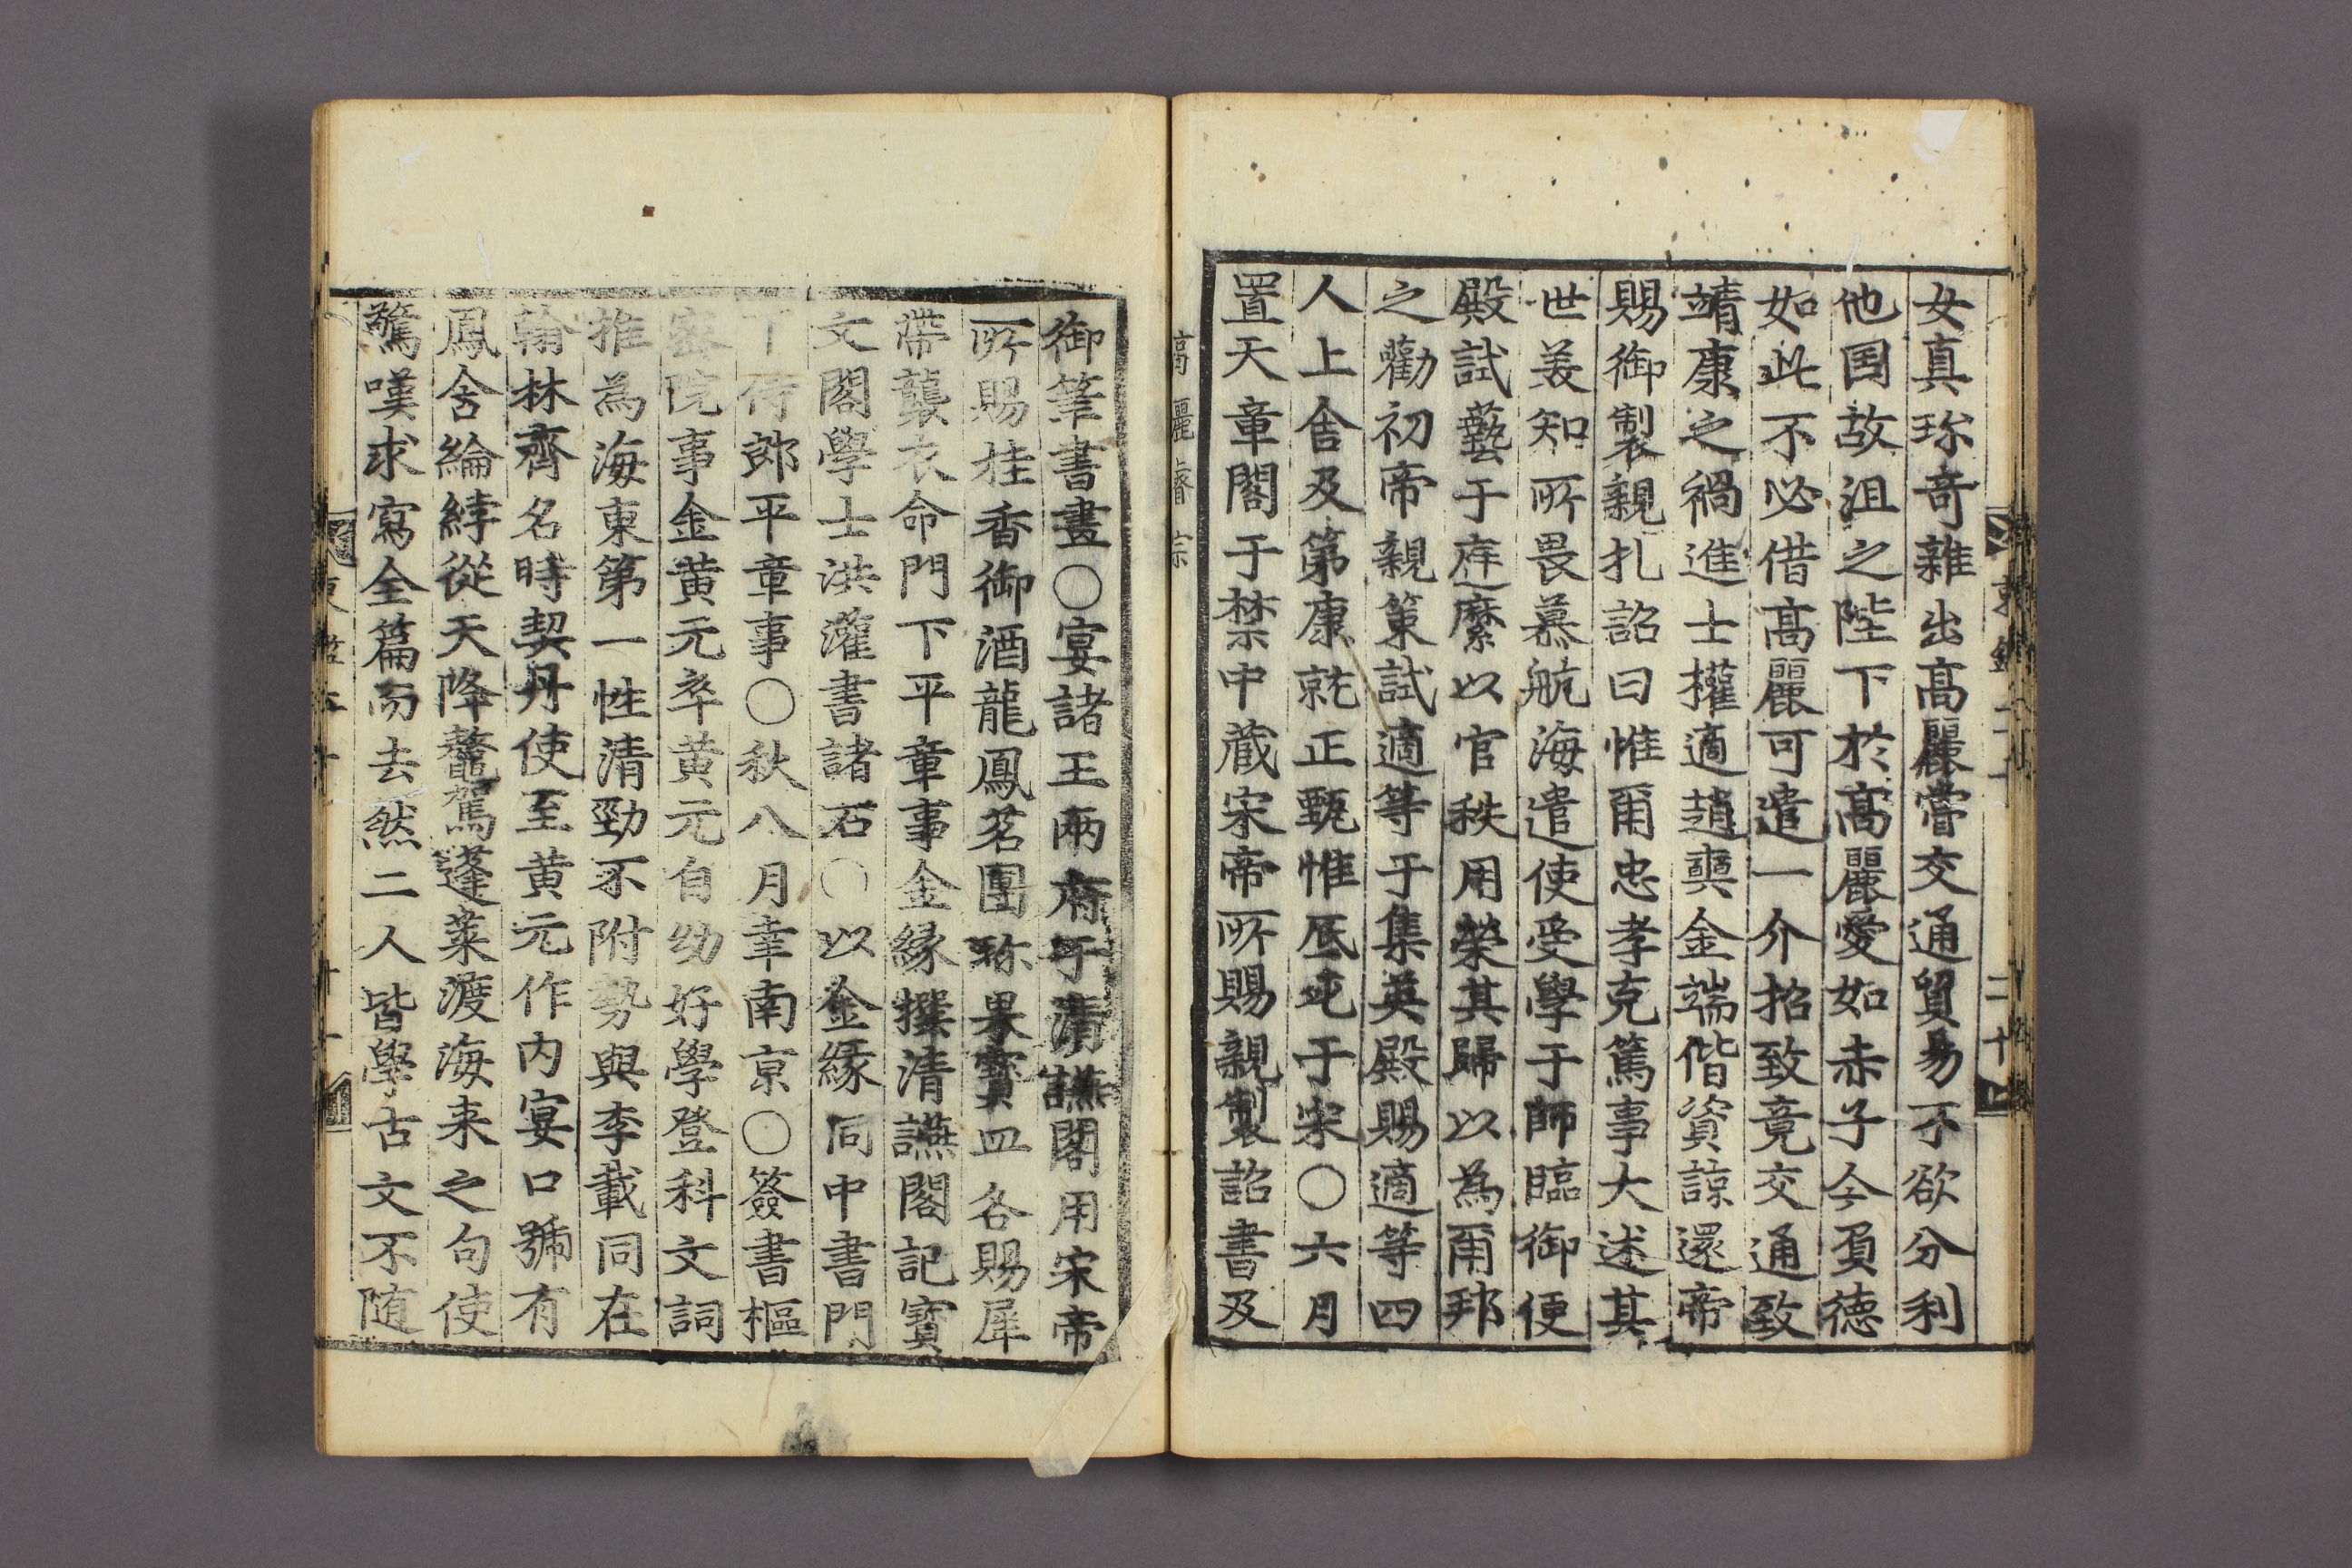 女真珎奇雜出高麗嘗交通貿易不欲分利
他国故沮之陛下於高麗愛如赤子今負德
如此不必借高麗可遣一介招致竟交通致
靖康之禍進士權適趙奭金端偕資諒還帝
賜御製親札詔曰惟爾忠孝克篤事大述其
世美知所畏慕航海遣使受學于師臨御便
殿試藝于庭縻以官秩用榮其歸以為爾邦
之勸初帝親策試適等于集英殿賜適等四
人上舍及第康就正甄惟底屯于宋○六月
置天章閣于禁中蔵宋帝所賜親製詔書及
高麗睿宗
御筆書畫○宴諸王兩府于清讌閣用宋帝
所賜桂香御酒龍鳳茗團珎果寶皿各賜犀
帶襲衣命門下平章事金緣撰清讌閣記寶
文閣學士洪灌書諸石○以金緣同中書門
下侍郎平章事○秋八月幸南京○簽書樞
密院事金黄元卒黄元自幼好學登科文詞
推為海東第一性清勁不附勢與李載同在
翰林齊名時契丹使至黄元作內宴口號有
鳳舍綸綍從天降鼇駕蓬萊渡海来之句使
驚嘆求寫全篇而去然二人皆學古文不随